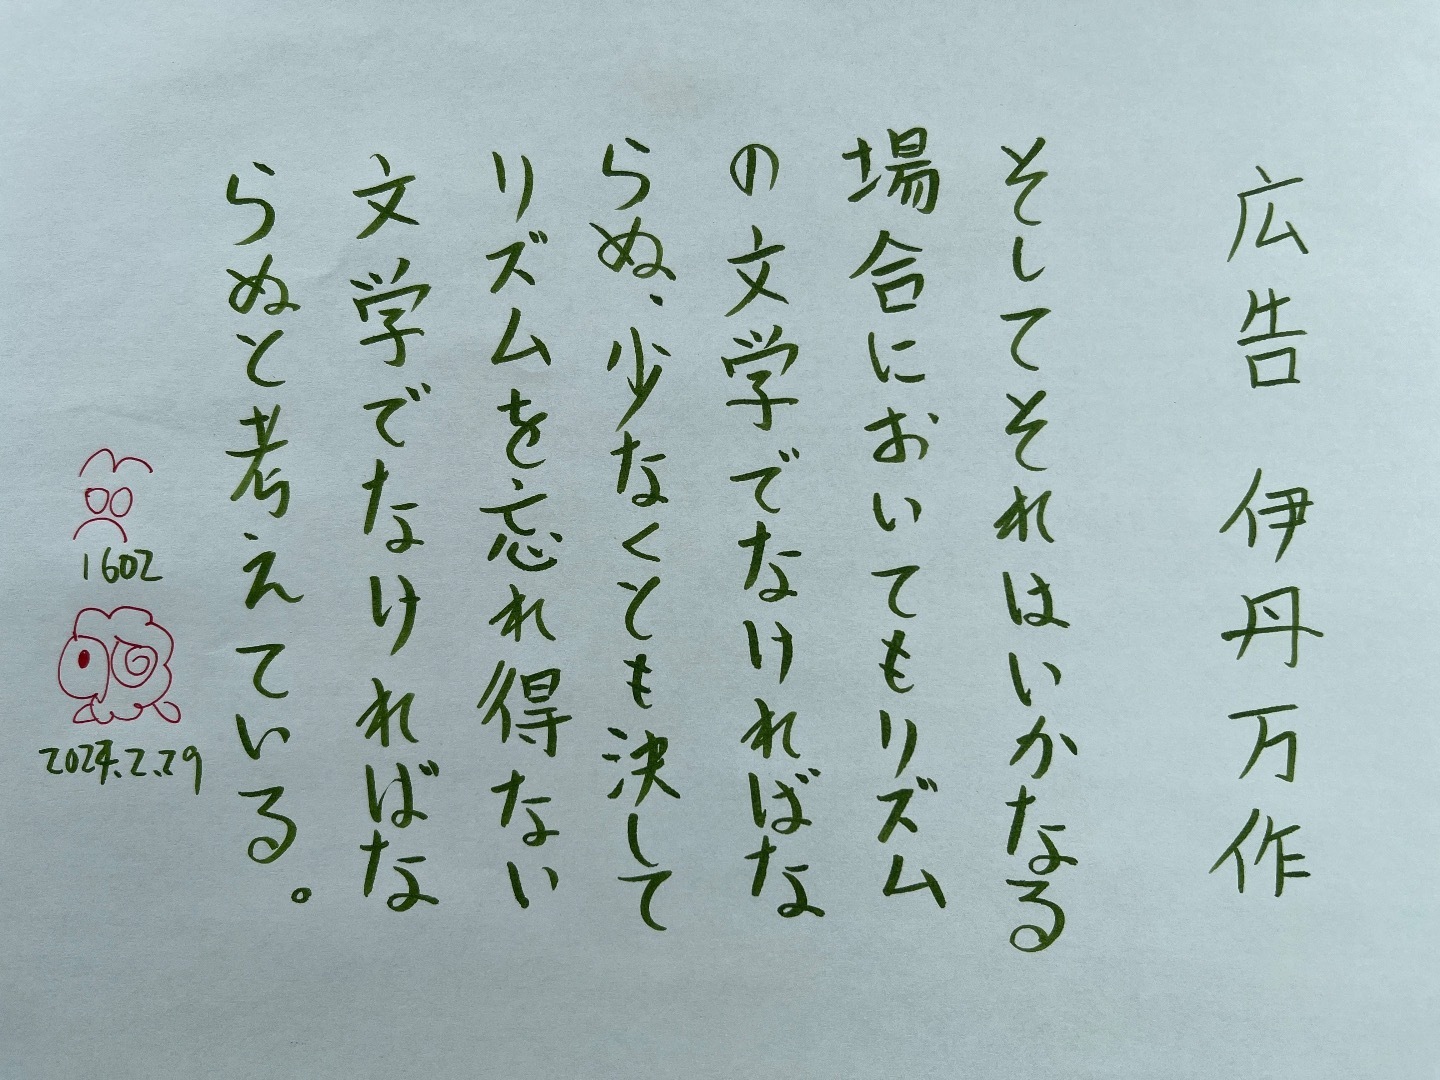 広告 伊丹万作
そしてそれはいかなる
場合においてもリズム
の文学でなければな
らぬ、少なくとも決して
リズムを忘れ得ない
文学でなければな
らぬと考えている。
1602
2024.2.29